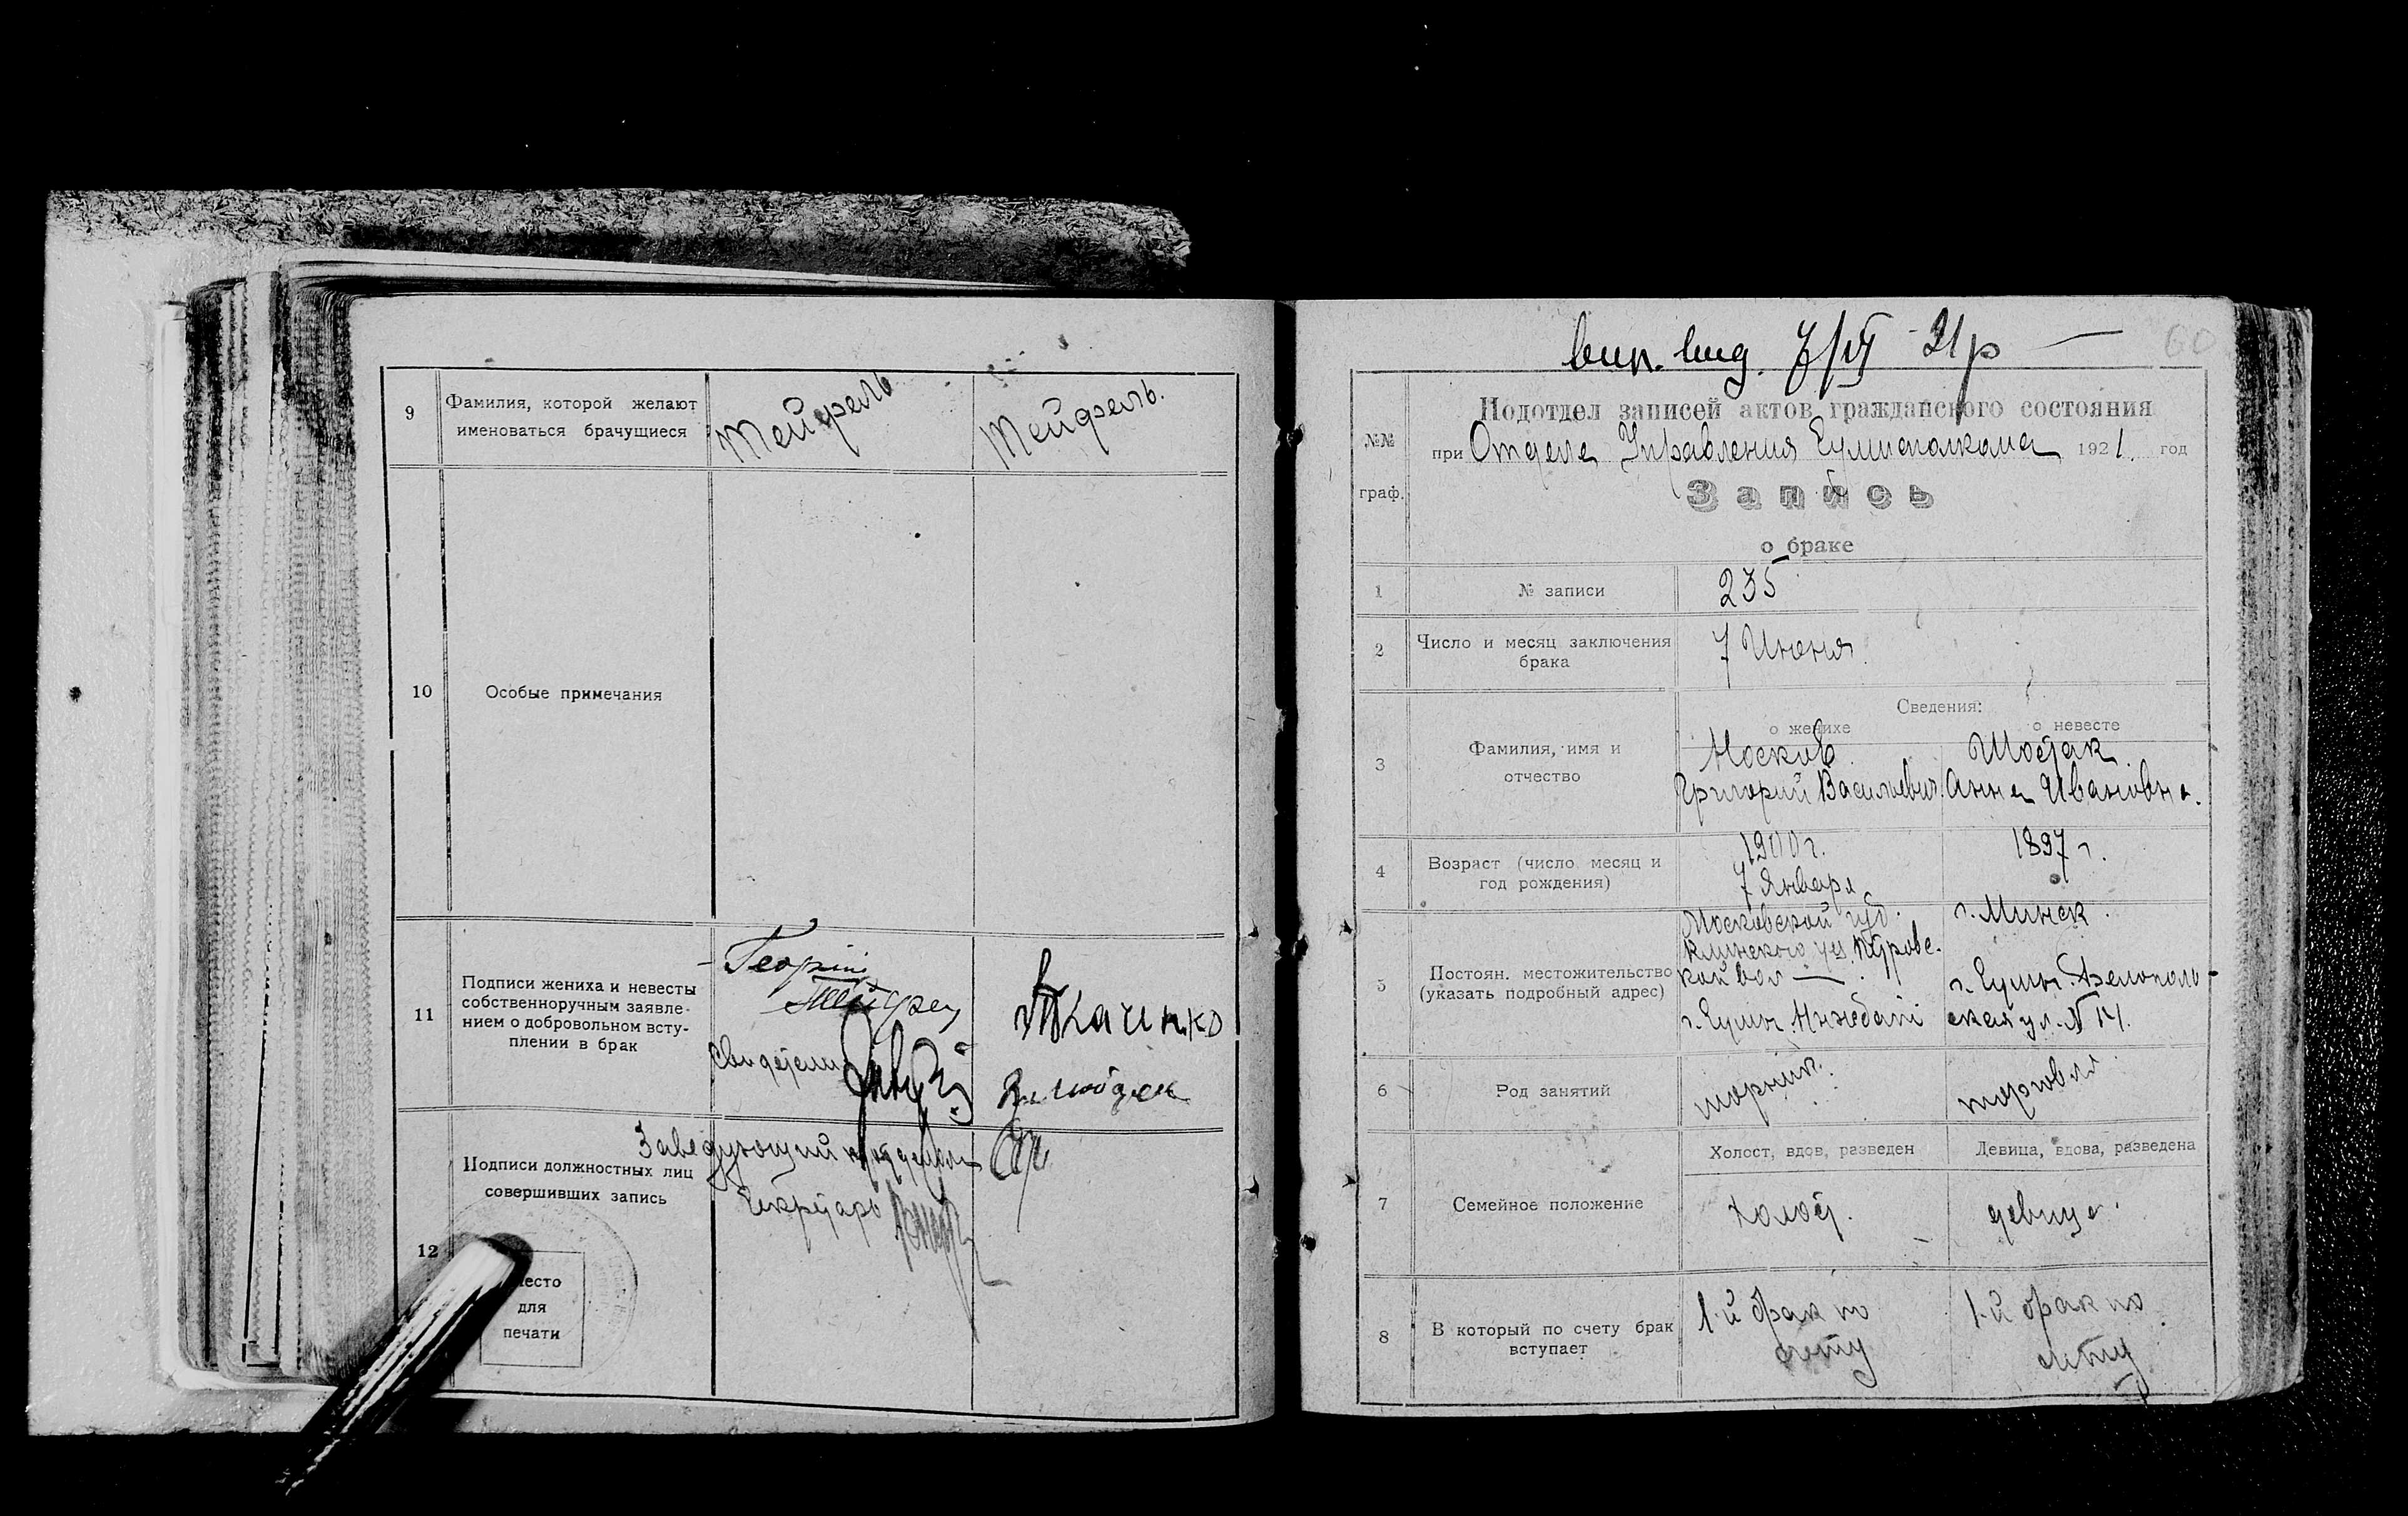 9
Фамилия, которой желают
именоваться брачущиеся
Тейфель
Тейфель.
10
Особые примечания
11
Подписи жениха и невесты
собственноручным заявле-
нием о добровольном всту-
плении в брак
Георгій
Тейфел
Ткаченко
Свидетели
12
Подписи должностных лиц
совершивших запись
Заведующий подотделом
Секретарь
Место
для
печати
вип. вид. 7/VI 21 р
60
№№
граф.
Подотдел записей актов гражданского состояния
при Отделе Управления 1921. год
Запись
о браке
1
№ записи
235
2
Число и месяц заключения
брака
7 Июня.
Сведения:
о женихе
о невесте
3
Фамилия, имя и
отчество
Носков.
Григорий Васильевич.
Шостак
Анна Ивановна.
4
Возраст (число месяц и
год рождения)
1900 г.
7 Января
1897 г.
5
Постоян. местожительство
(указать подробный адрес)
Московской губ.
Клинского уез.
кой вол —
г. Сумы
г. Минск.
г. Сумы. Белополь-
ская ул. №
6
Род занятий
шорник.
торговля
7
Семейное положение
Холост, вдов, разведен
Девица, вдова, разведена
холост.
девица.
8
В который по счету брак
вступает
1-й брак по
счету
1-й брак по
счету